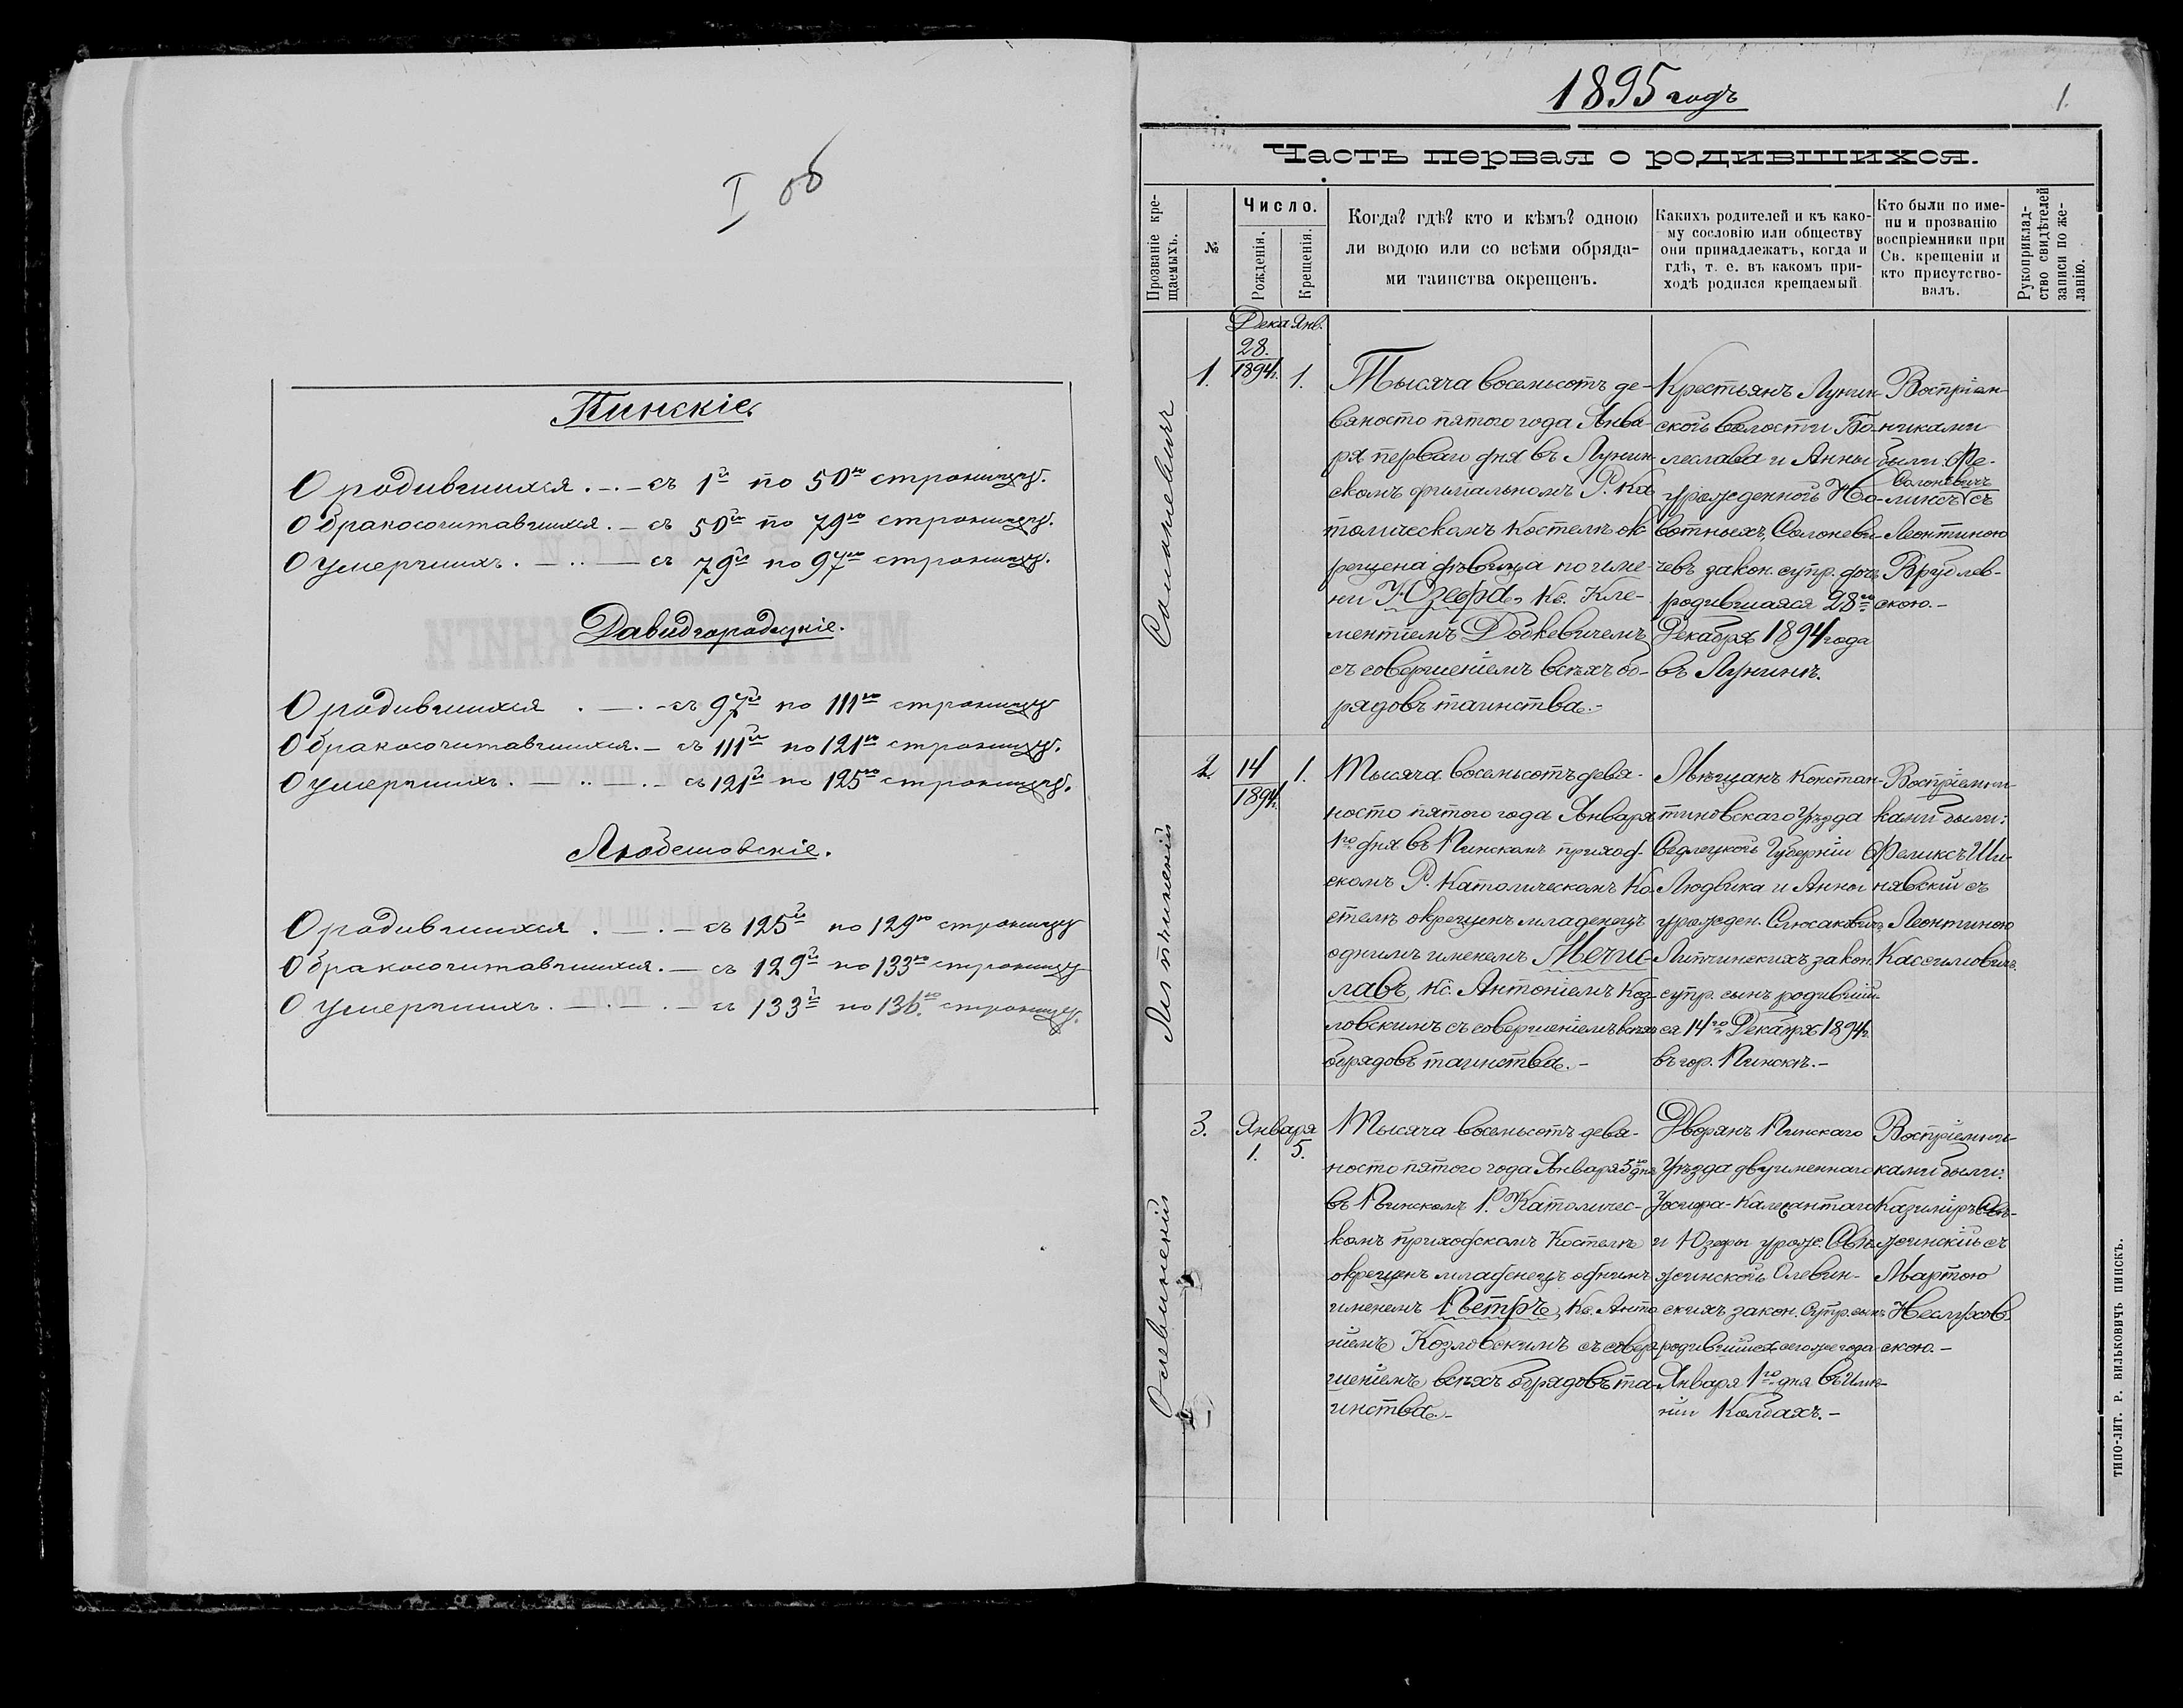 I об
Пинскіе.
О родившихся . — . — съ 1й по 50ю страницу.
О бракосочитавшихся. — съ 50й по 79ю страницу.
О умершихъ . — .. — съ 79й по 97ю страницу.
Давидгородецкіе.
О родившихся . — . — съ 97й по 111ю страницу
О бракосочитавшихся. — съ 111й по 121ю страницу.
О умершихъ . — .. — . — съ 121й по 125ю страницу.
Любешовскіе.
О родившихся . — . — съ 125й по 129ю страницу
О бракосочитавшихся. — съ 129й по 133ю страницу
О умершихъ. — . — . — съ 133й по 136ю страницу.
1895 годъ
1.
Часть первая о родившихся.
Прозваніе кре-
щаемыхъ.
№
Число.
Рожденія.
Крещенія.
Когда? гдѣ? кто и кѣмъ? одною
ли водою или со всѣми обряда-
ми таинства окрещенъ.
Какихъ родителей и къ како-
му сословію или обществу
они принадлежатъ, когда и
гдѣ, т. е. въ какомъ при-
ходѣ родился крещаемый
Кто были по име-
ни и прозванію
воспріемники при
Св. крещеніи и
кто присутство-
валъ.
Рукоприклад-
ство свидѣтелей
записи по же-
ланію.
1.
Дека Янв.
28.
1894г. 1.
Тысяча восемьсотъ де-
вяносто пятого года Янва-
ря перваго дня въ Лунин-
скомъ филіальномъ Р. Ка
толическомъ Костелѣ ок-
рещена дѣвица по име-
ни Юзефа, Кс. Кле-
ментіемъ Доткевичемъ
съ совершеніемъ всѣхъ об-
рядовъ таинства.-
Крестьянъ Лунин
ской волости Бо-
леслава и Анны
урожденной
Солоневи-
чевъ закон. супр. дочь
родившаяся 28го
Декабря 1894 года
въ Лунинѣ.
Воспріем-
никами
были: Фе-
Солоневичъ
ликсъ съ
Леонтиною
Врублев-
скою.-
2
14
1894г.
1.
Тысяча восемьсотъ девя-
носто пятого года Января
1го дня въ Пинскомъ приход-
скомъ Р. Католическомъ Ко
стелѣ окрещенъ младенецъ
однимъ именемъ Мечи-
лавъ, Кс. Антоніемъ Коз-
ловскимъ съ совершеніемъ всѣхъ
обрядовъ таинства.-
Мѣщанъ Констан-
тиновскаго Уѣзда
Седлецкой Губерніи
Людвика и Анны
урожден.
Липчинскихъ закон.
супр. сынъ родивший-
ся 14го Декабря 1894г.
въ гор. Пинскѣ.-
Воспріемни-
ками были:
Феликсъ Ши-
нявскій съ
Леонтиною
3.
Января
1. 5.
Тысяча восемьсотъ девя-
носто пятого года Января 5го дня
въ Пинскомъ Р. Католичес-
комъ приходскомъ Костелѣ
окрещенъ младенецъ однимъ
именемъ Петръ, Кс. Анто
ніемъ Козловскимъ съ совер
шеніемъ всѣхъ обрядовъ та-
инства.-
Дворянъ Пинскаго
Уѣзда двуименнаго
и Юзефы урож.
Олевин-
скихъ закон. супр. сынъ
родившийся сего же года
Января 1го дня въ Имѣ-
ніи Колбахъ.-
Воспріемни-
ками были:
Казиміръ
съ
Мартою
скою.-
Олевинскій
ТИПО-ЛИТ. Р. ВИЛЬКОВИЧЪ ПИНСКЪ.